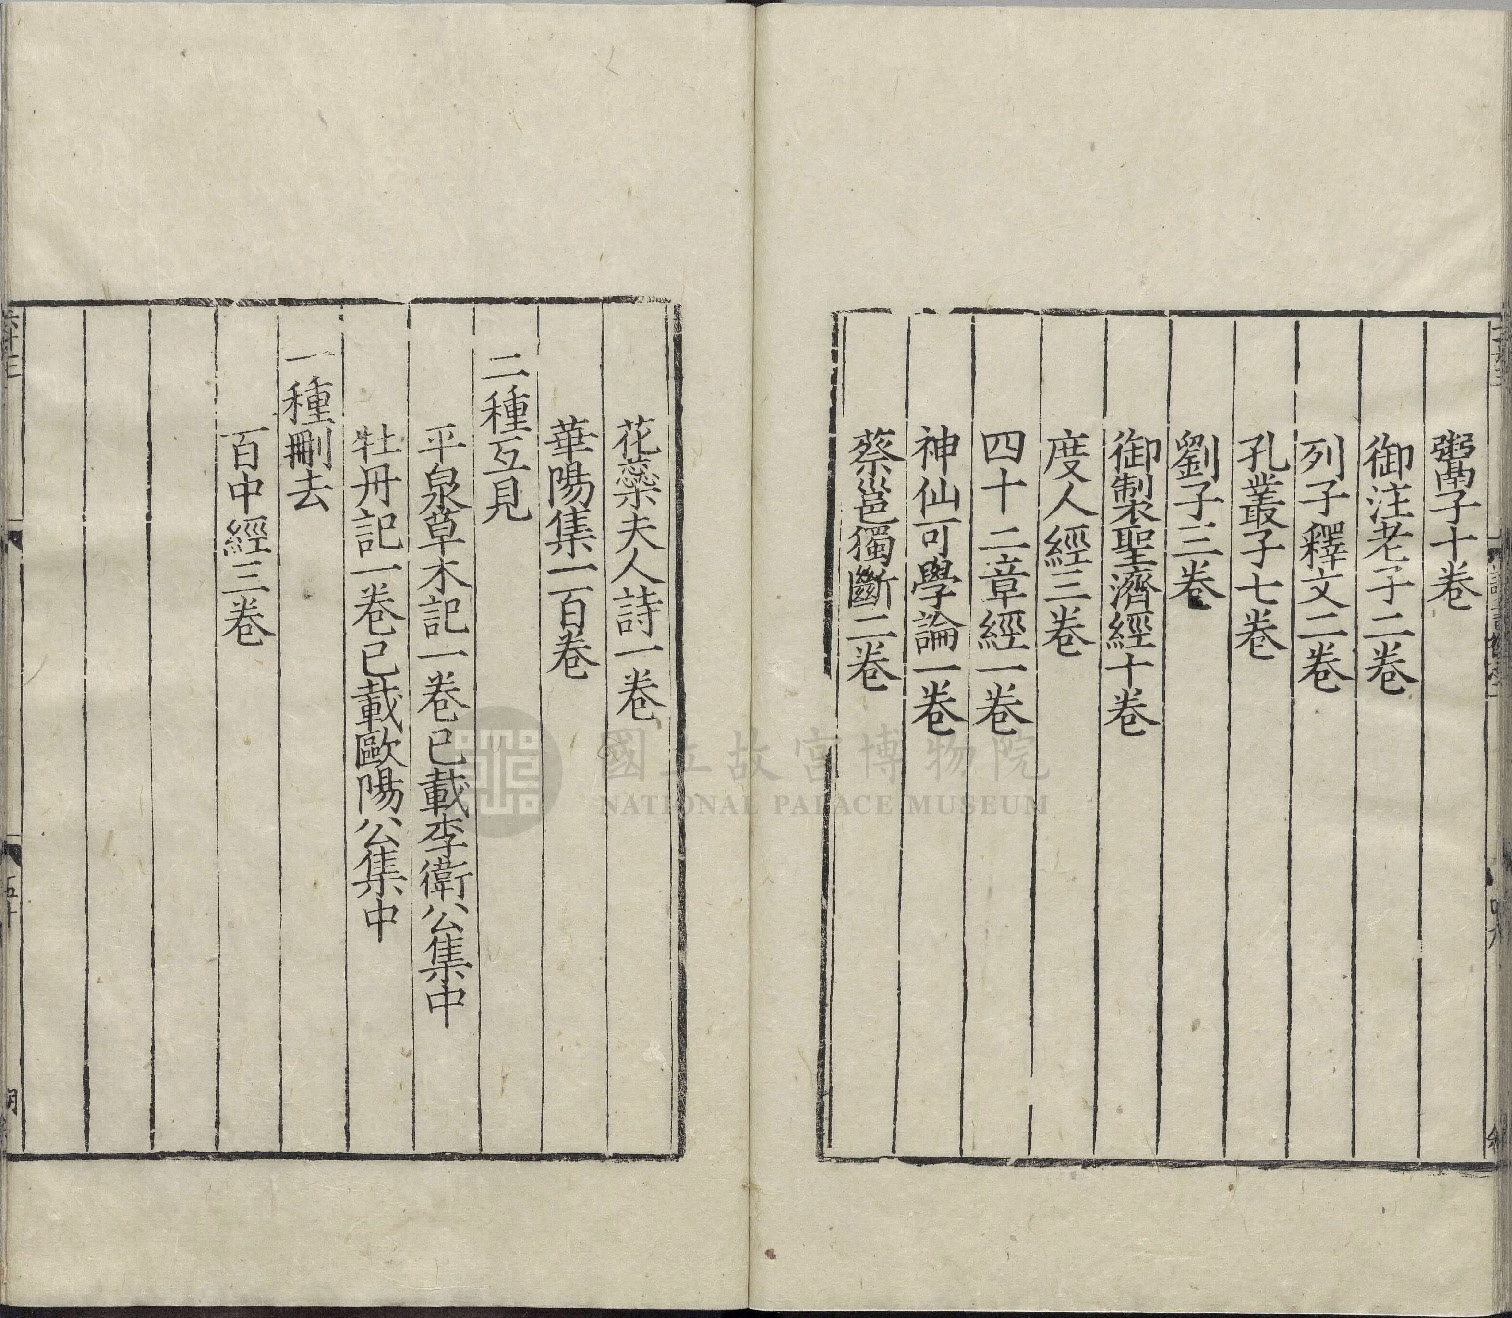 鬻子十卷
御注老子二卷
列子釋文二卷
孔叢子七卷
劉子三卷
御製聖濟經十卷
度人經三卷
四十二章經一卷
神仙可學論一卷
蔡邕獨斷二卷
花蘂夫人詩一卷
華陽集一百卷
二種互見
平泉草木記一卷已載李衛公集中
牡丹記一卷已載歐陽公集中
一種刪去
百中經三卷
五十
國立故宮博物院
NATIONAL PALACE MUSEUM